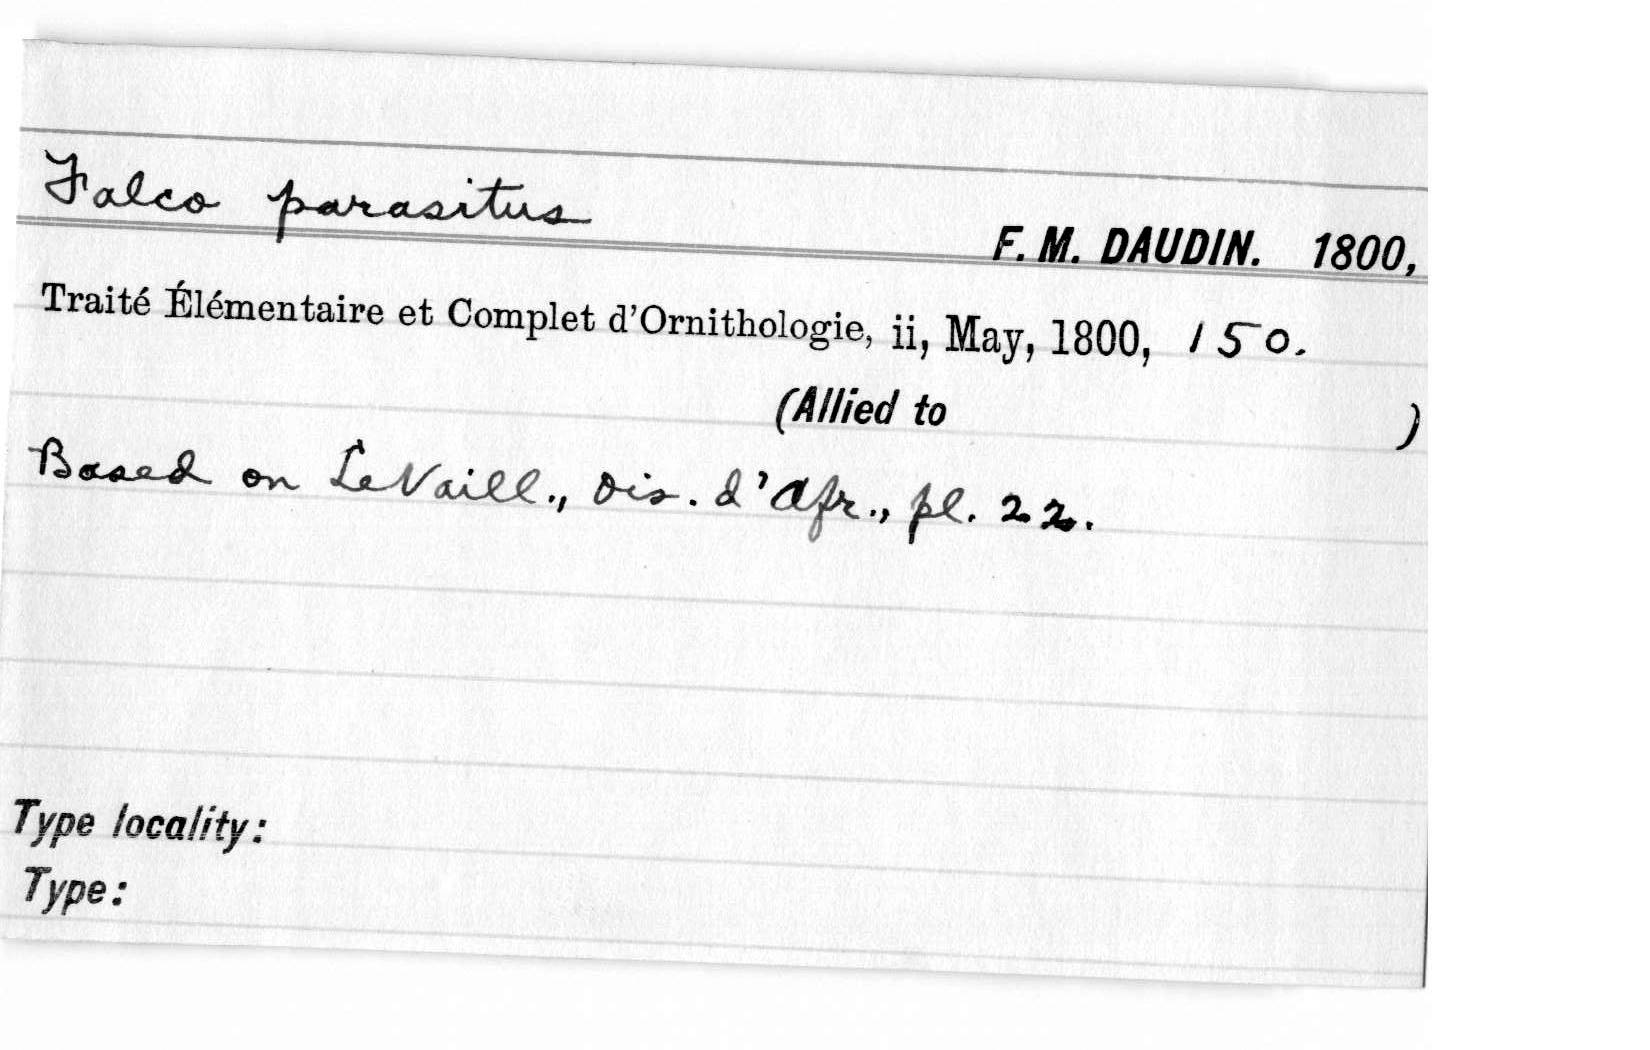 Falco parasitus
F. M. DAUDIN. 1800,
Traité Élémentaire et Complet d'Ornithologie, ii, May, 1800, 150.
(Allied to )
Based on LeVaill., Ois. d'Afr., pl. 22.
Type locality:
Type: